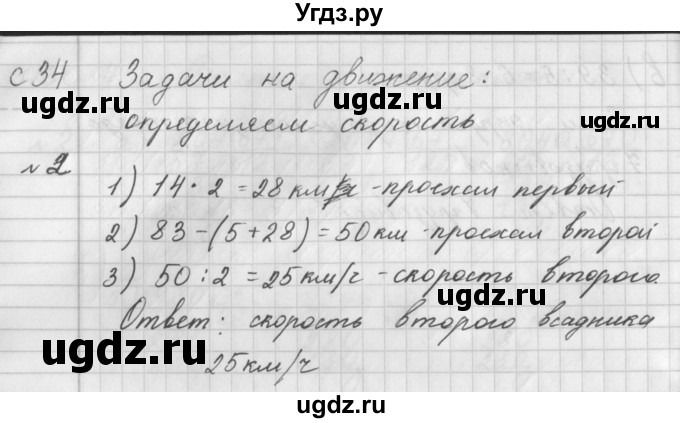 Угдз.ру
с 34 Задачи на движение:
ugdz.ru ugdz.ru
определяем скорость
№2
1) 14 · 2 = 28 км - проехал первый
2) 83 - (5 + 28) = 50 км - проехал второй
3) 50 : 2 = 25 км/ч - скорость второго
ugdz.ru
Ответ: скорость второго всадника
ugdz.ru
25 км/ч
ugdz.ru